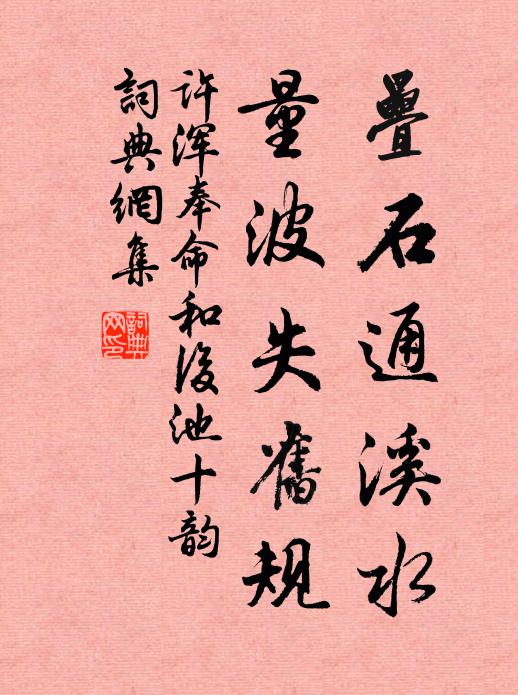 疊石通溪水
量波失舊規
许浑奉命和後池十韵
詞典網集
詞典
网印